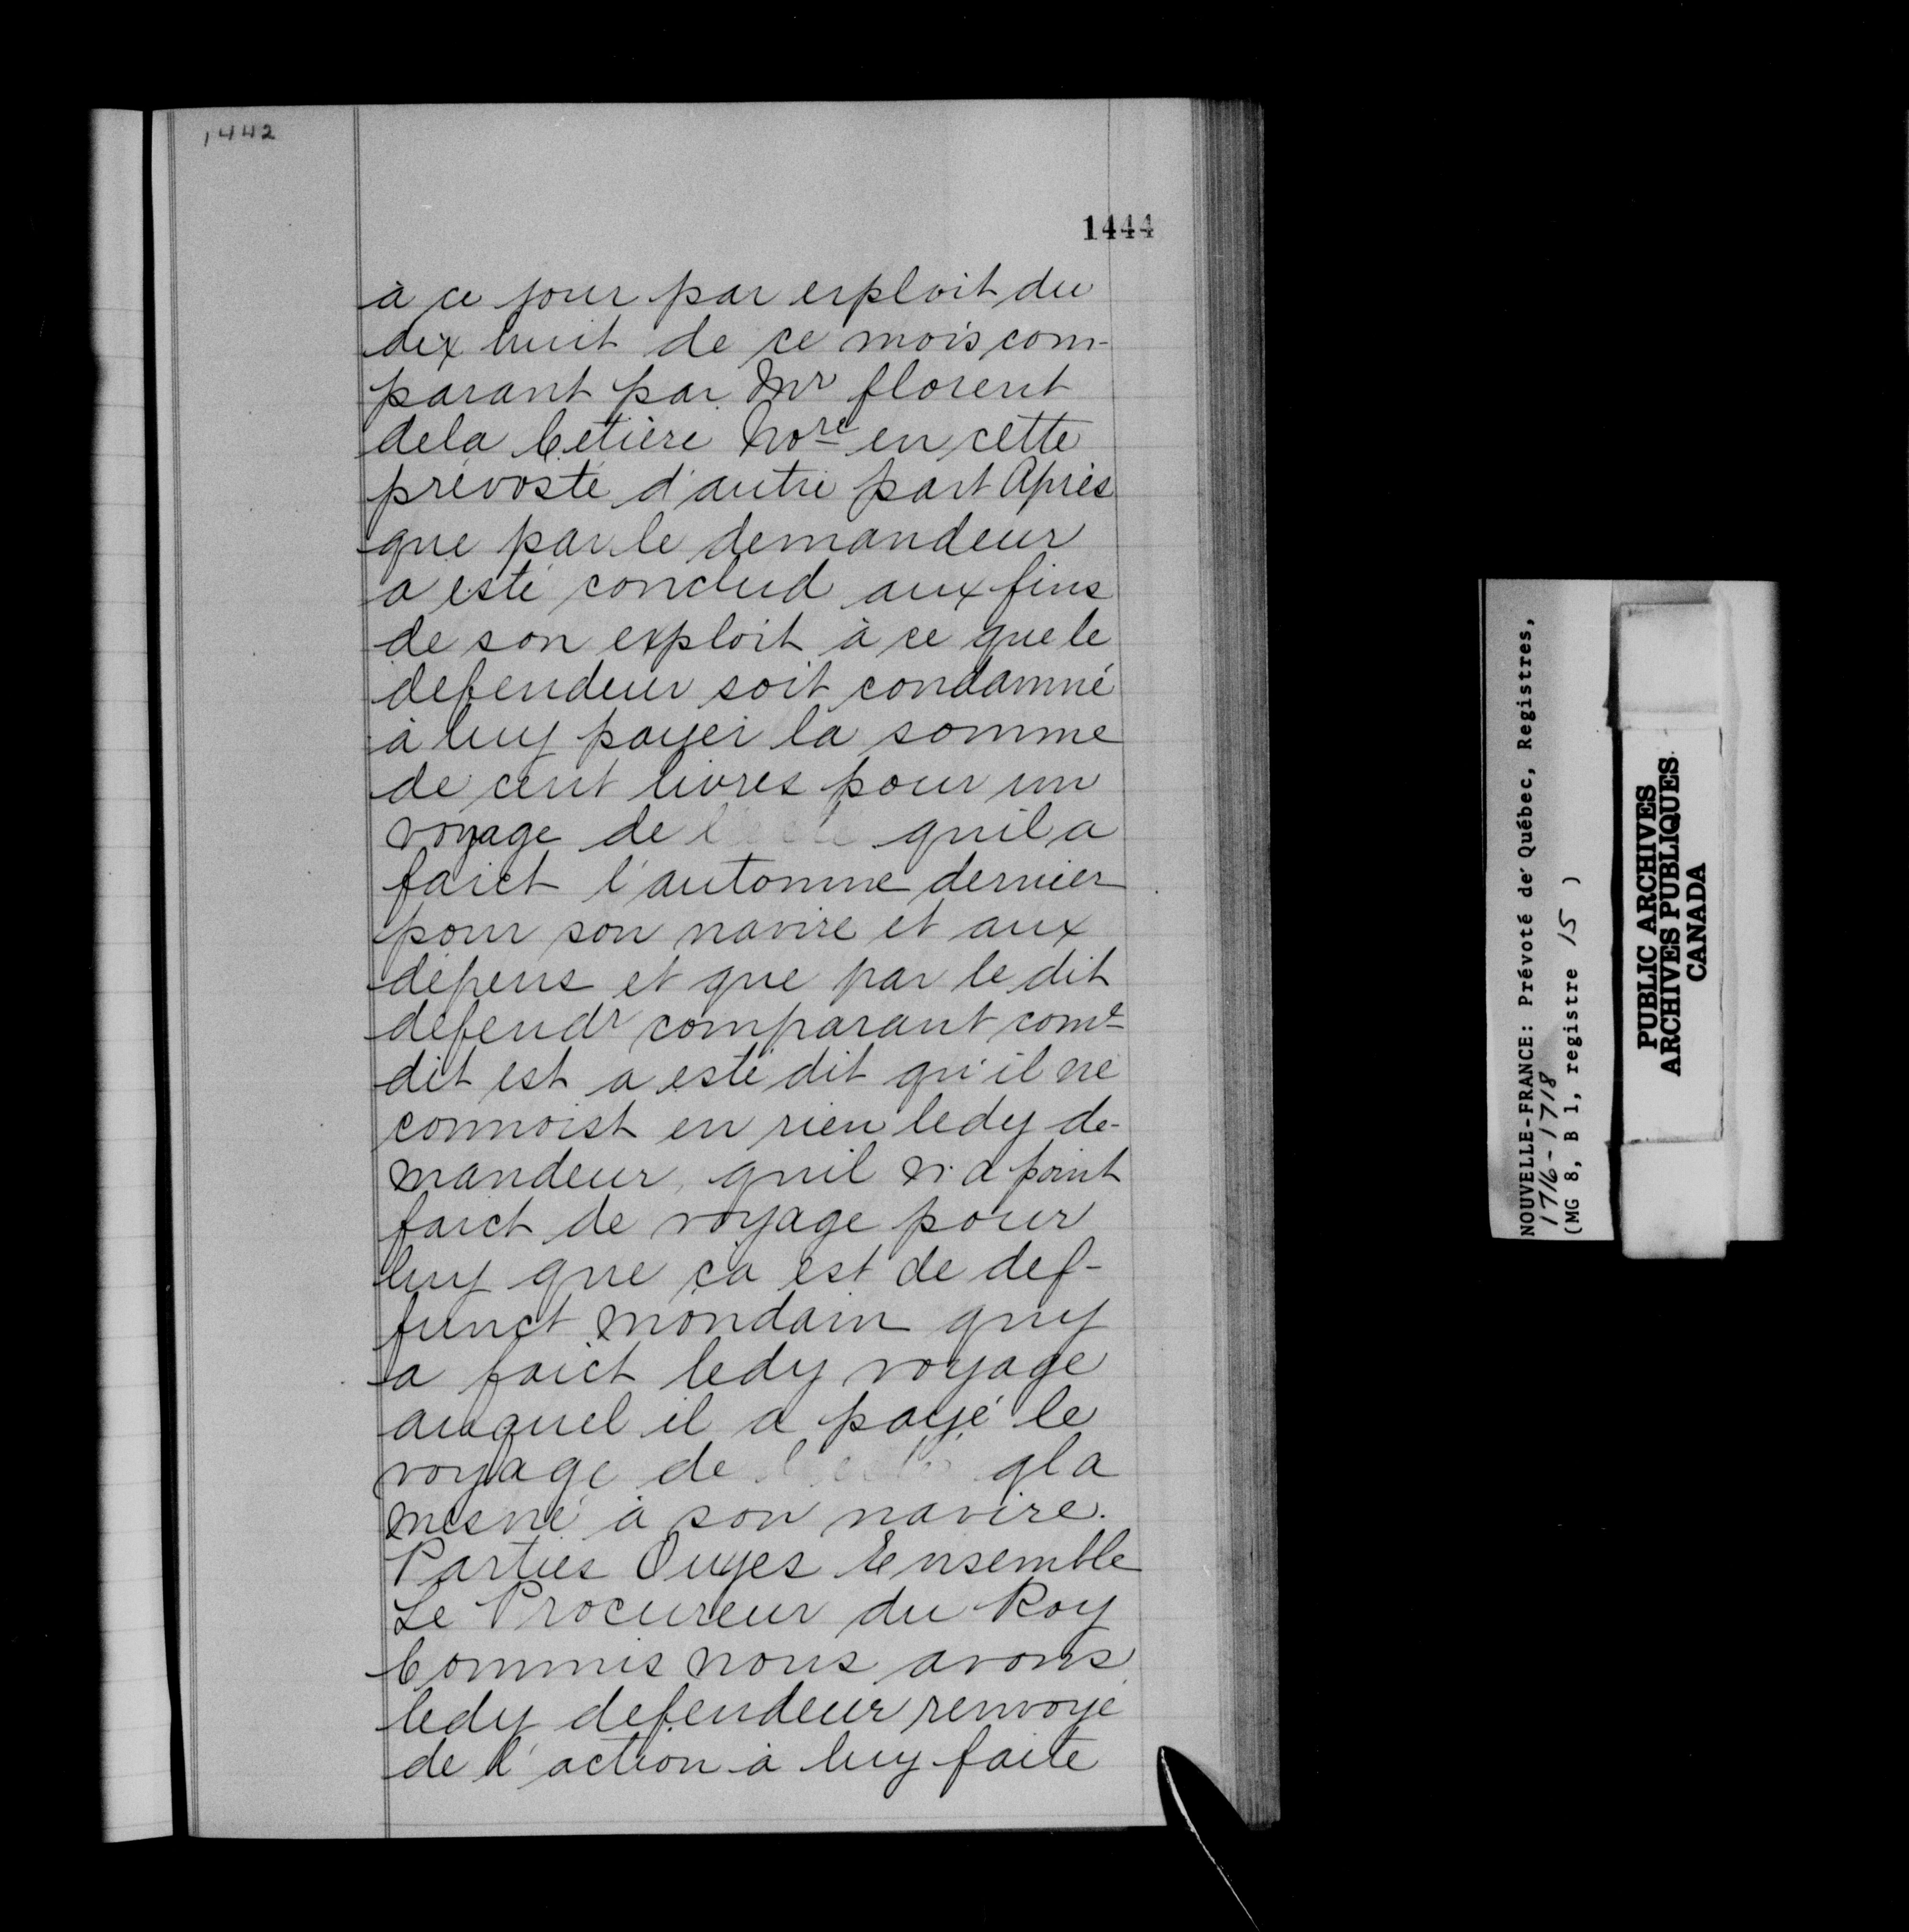 1442
1444
à ce jour par exploit du
dix huit de ce mois com-
parant par Mr florent
dela Cetière Nore en cette
prévosté d'autre part Après
que par le demandeur
a esté conclud aux fins
de son exploit à ce que le
defendeur soit condamné
à luy payer la somme
de cent livres pour un
voyage de quil a
faict l'automne dernier
pour son navire et aux
dépens et que par le dit
défendr comparant come
dit est a esté dit qu'il ne
connoist en rien ledy de-
mandeur, quil n'a point
faict de voyage pour
luy que ça est de def-
funct mondain quy
a faict ledy voyage
auquel il a payé le
voyage de qla
mesné à son navire.
Parties Ouyes Ensemble
Le Procureur du Roy
Commis nous avons
ledy defendeur renvoyé
de l'action à luy faite
NOUVELLE-FRANCE: Prévoté de Québec, Registres,
1716-1718
(MG 8, B 1, registre 15 )
PUBLIC ARCHIVES
ARCHIVES PUBLIQUES
CANADA